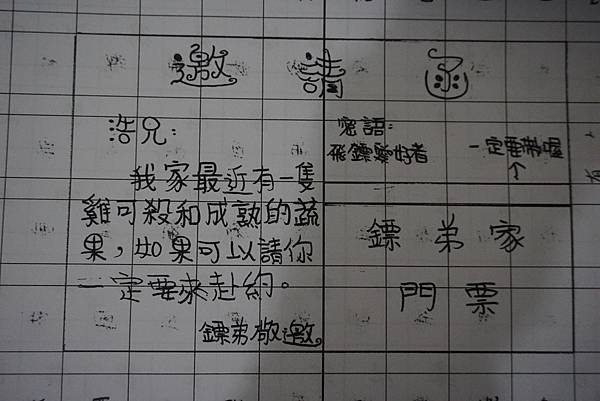 邀請函
浩兄：
我家最近有一隻
雞可殺和成熟的蔬
果，如果可以請你
一定要來赴約。
鏢弟敬邀。
密語：
飛鏢愛好者
一定要帶喔
個
鏢弟家
門票